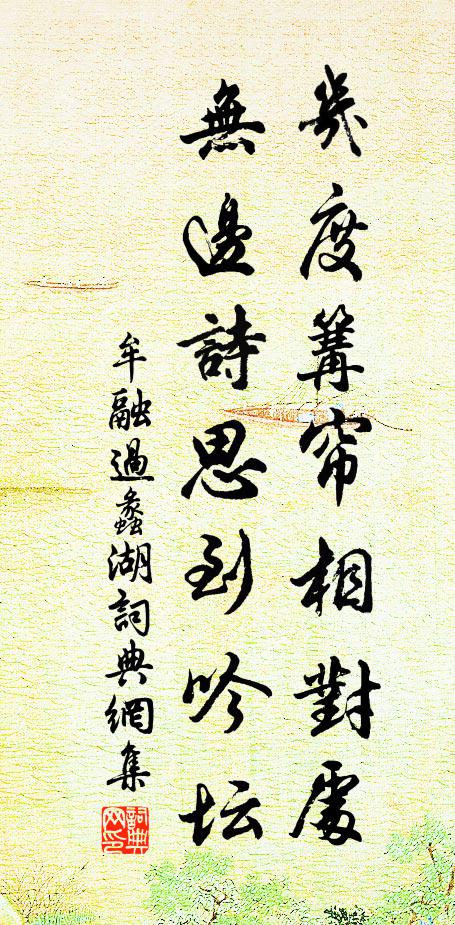 幾度篝帘相對處
無邊詩思到吟坛
牟融過蠡湖詞典網集
詞典網印